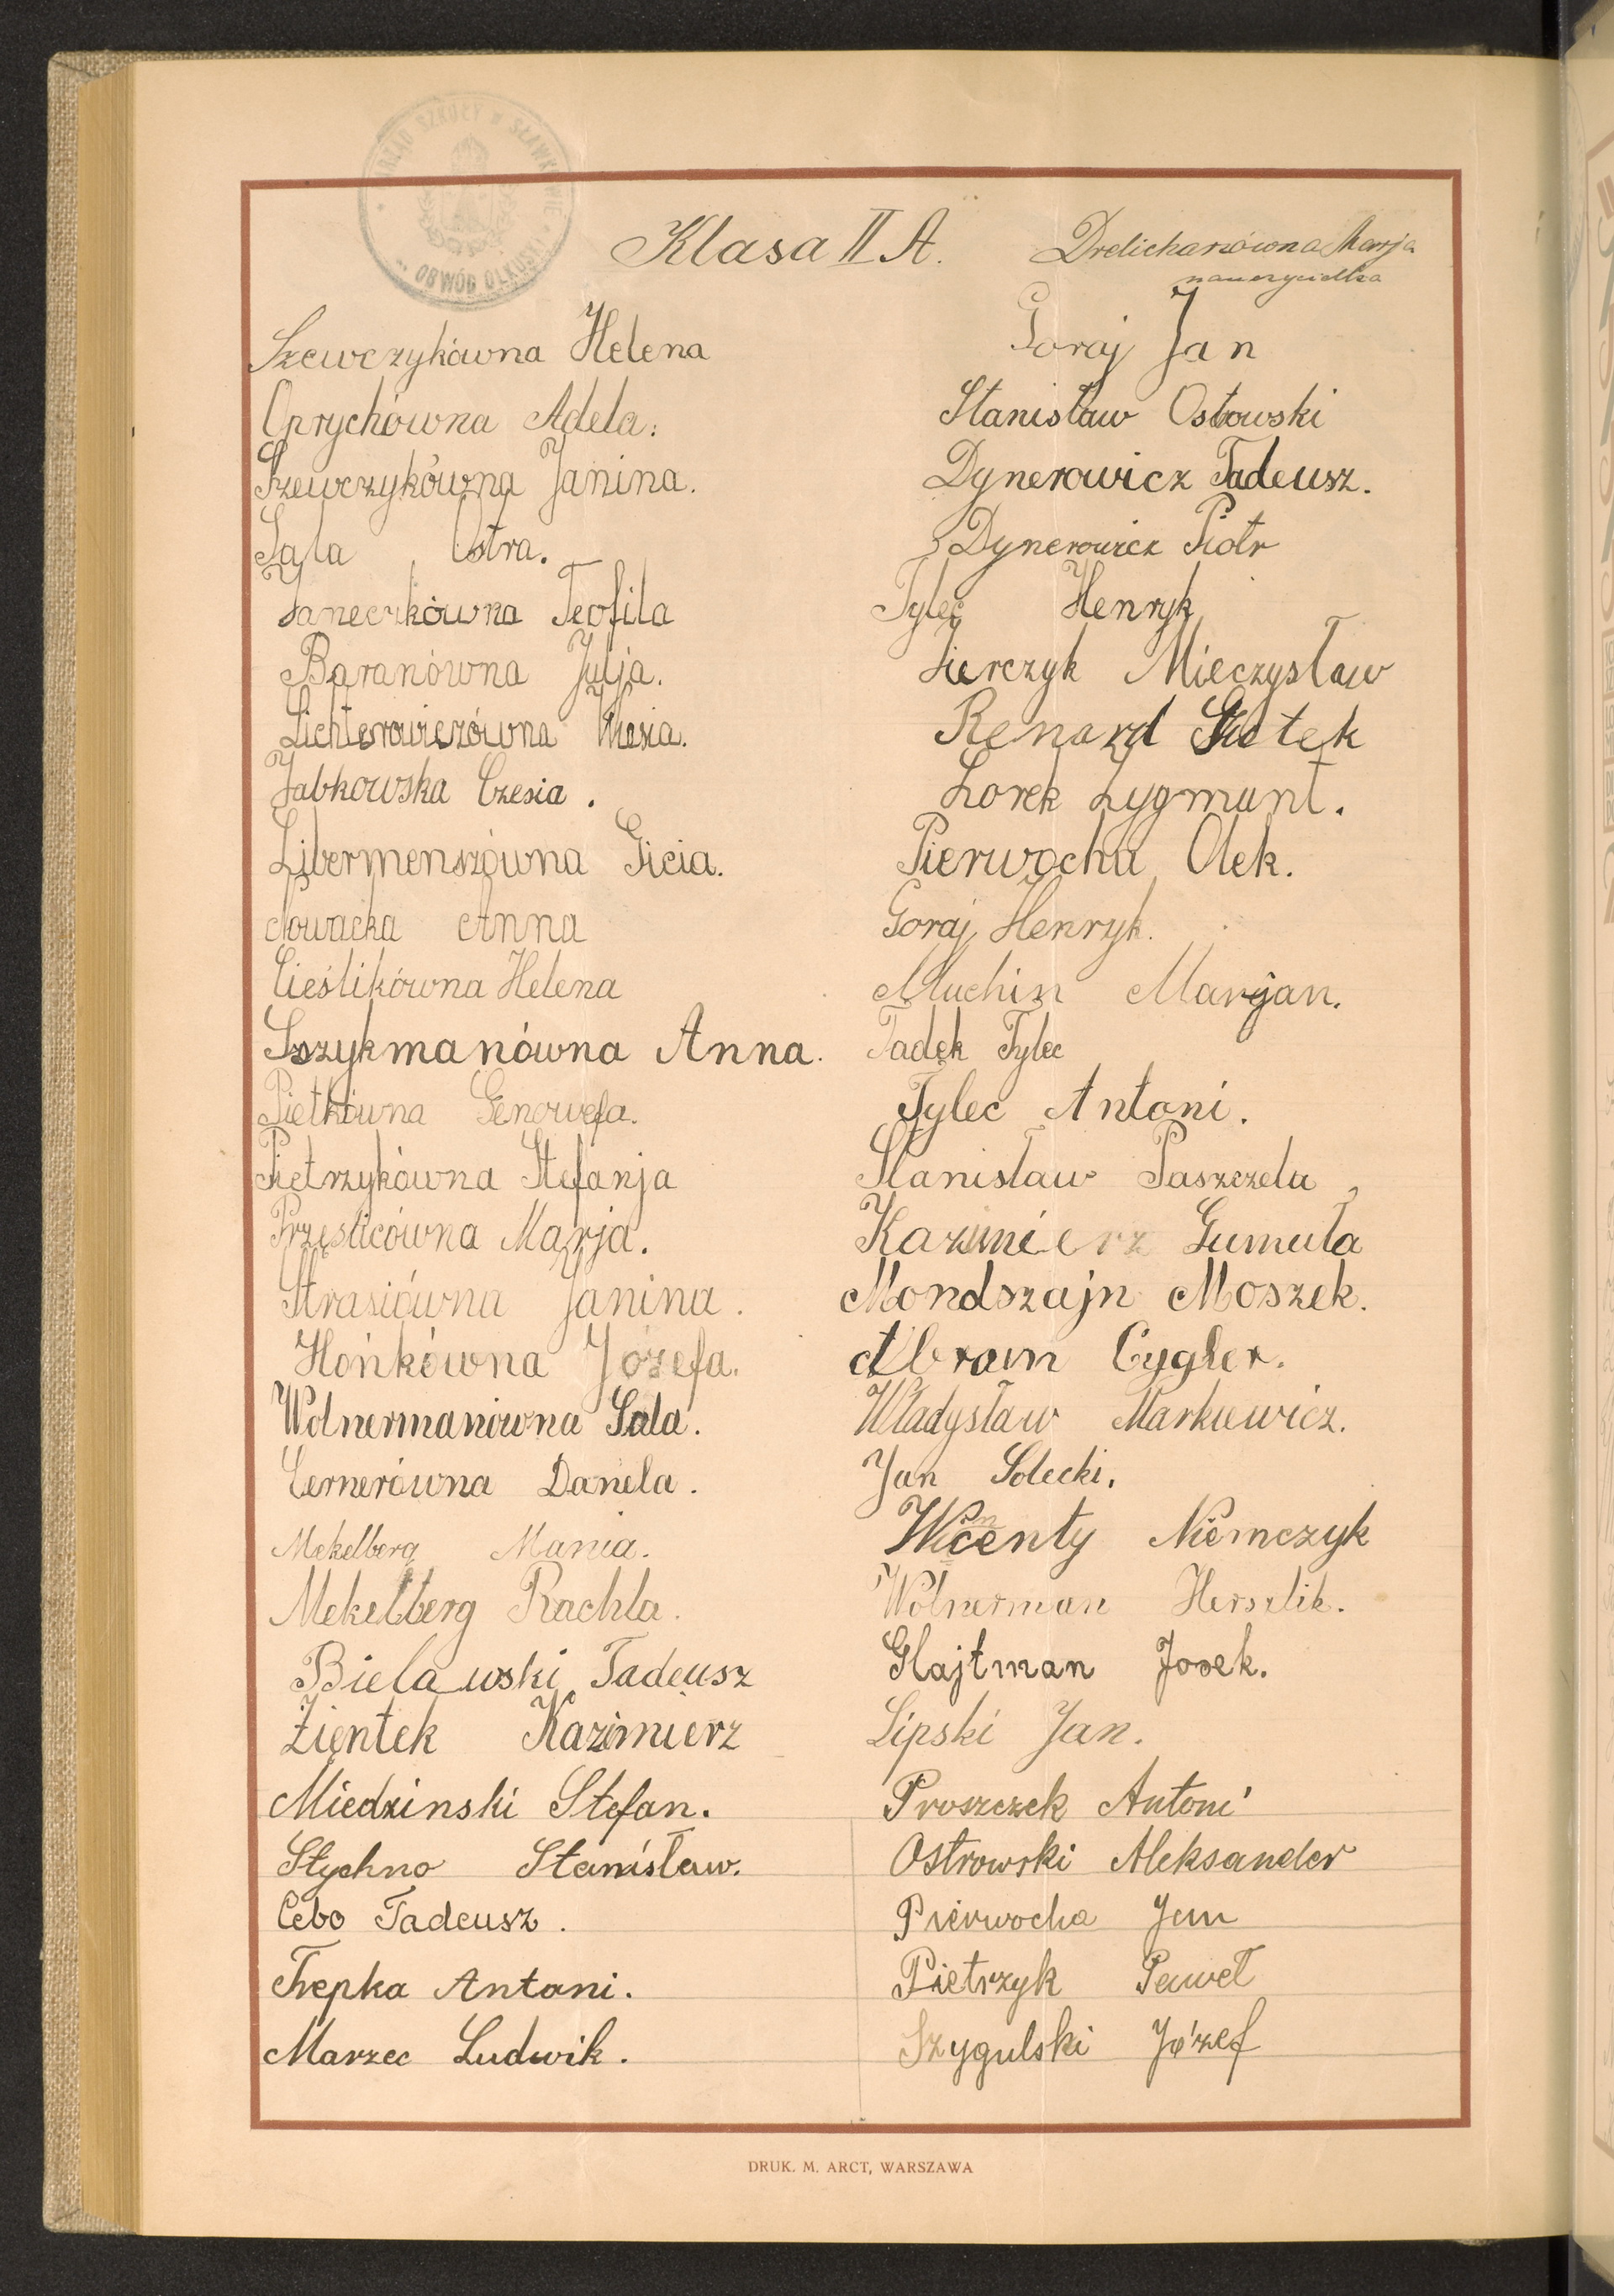 ZARZĄD SZKOŁY W SŁAWKOWIE
OBWÓD OLKUSKI
Klasa II A.
Drelichanówna Marja
nauczycielka
Szewczykówna Helena
Oprychówna Adela.
Szewczykówna Janina.
Sala Ostra.
Janeczkówna Teofila
Baranówna Julja.
Lichterowiczówna
Jabkowska Czesia.
Libermenszówna Gicia.
Nowacka Anna
Cieślikówna Helena
Szzykmanówna Anna.
Pietkówna Genowefa.
Pietrzykówna Stefanja
Przeslicówna Marja.
Strasiówna Janina.
Hońkówna Józefa.
Wolnermanówna Sala.
Cernerówna Danela.
Mekelberg Mania.
Mekelberg Rachla.
Bielawski Tadeusz
Zientek Kazimierz
Miedzinski Stefan.
Stychno Stanisław.
Cebo Tadeusz.
Trepka Antoni.
Marzec Ludwik.
Goraj Jan
Stanisław Ostowski
Dynerowicz Tadeusz.
Dynerowicz Piotr
Tylec Henryk
Sierczyk Mieczysław
Renard
Lorek Zygmunt.
Pierwocha Olek.
Goraj Henryk.
Muchin Marjan.
Tadek Tylec
Tylec Antoni.
Stanisław Paszczela
Kazimierz Gumuła
Mondszajn Moszek.
Abram Cygler.
Władysław Markiewicz.
Jan Solecki.
Wincenty Niemczyk
Wolnerman Herszlik.
Glajtman Josek.
Lipski Jan.
Proszczek Antoni
Ostrowski Aleksander
Pierwocha Jan
Pietrzyk Paweł
Szygulski Józef
DRUK. M. ARCT, WARSZAWA